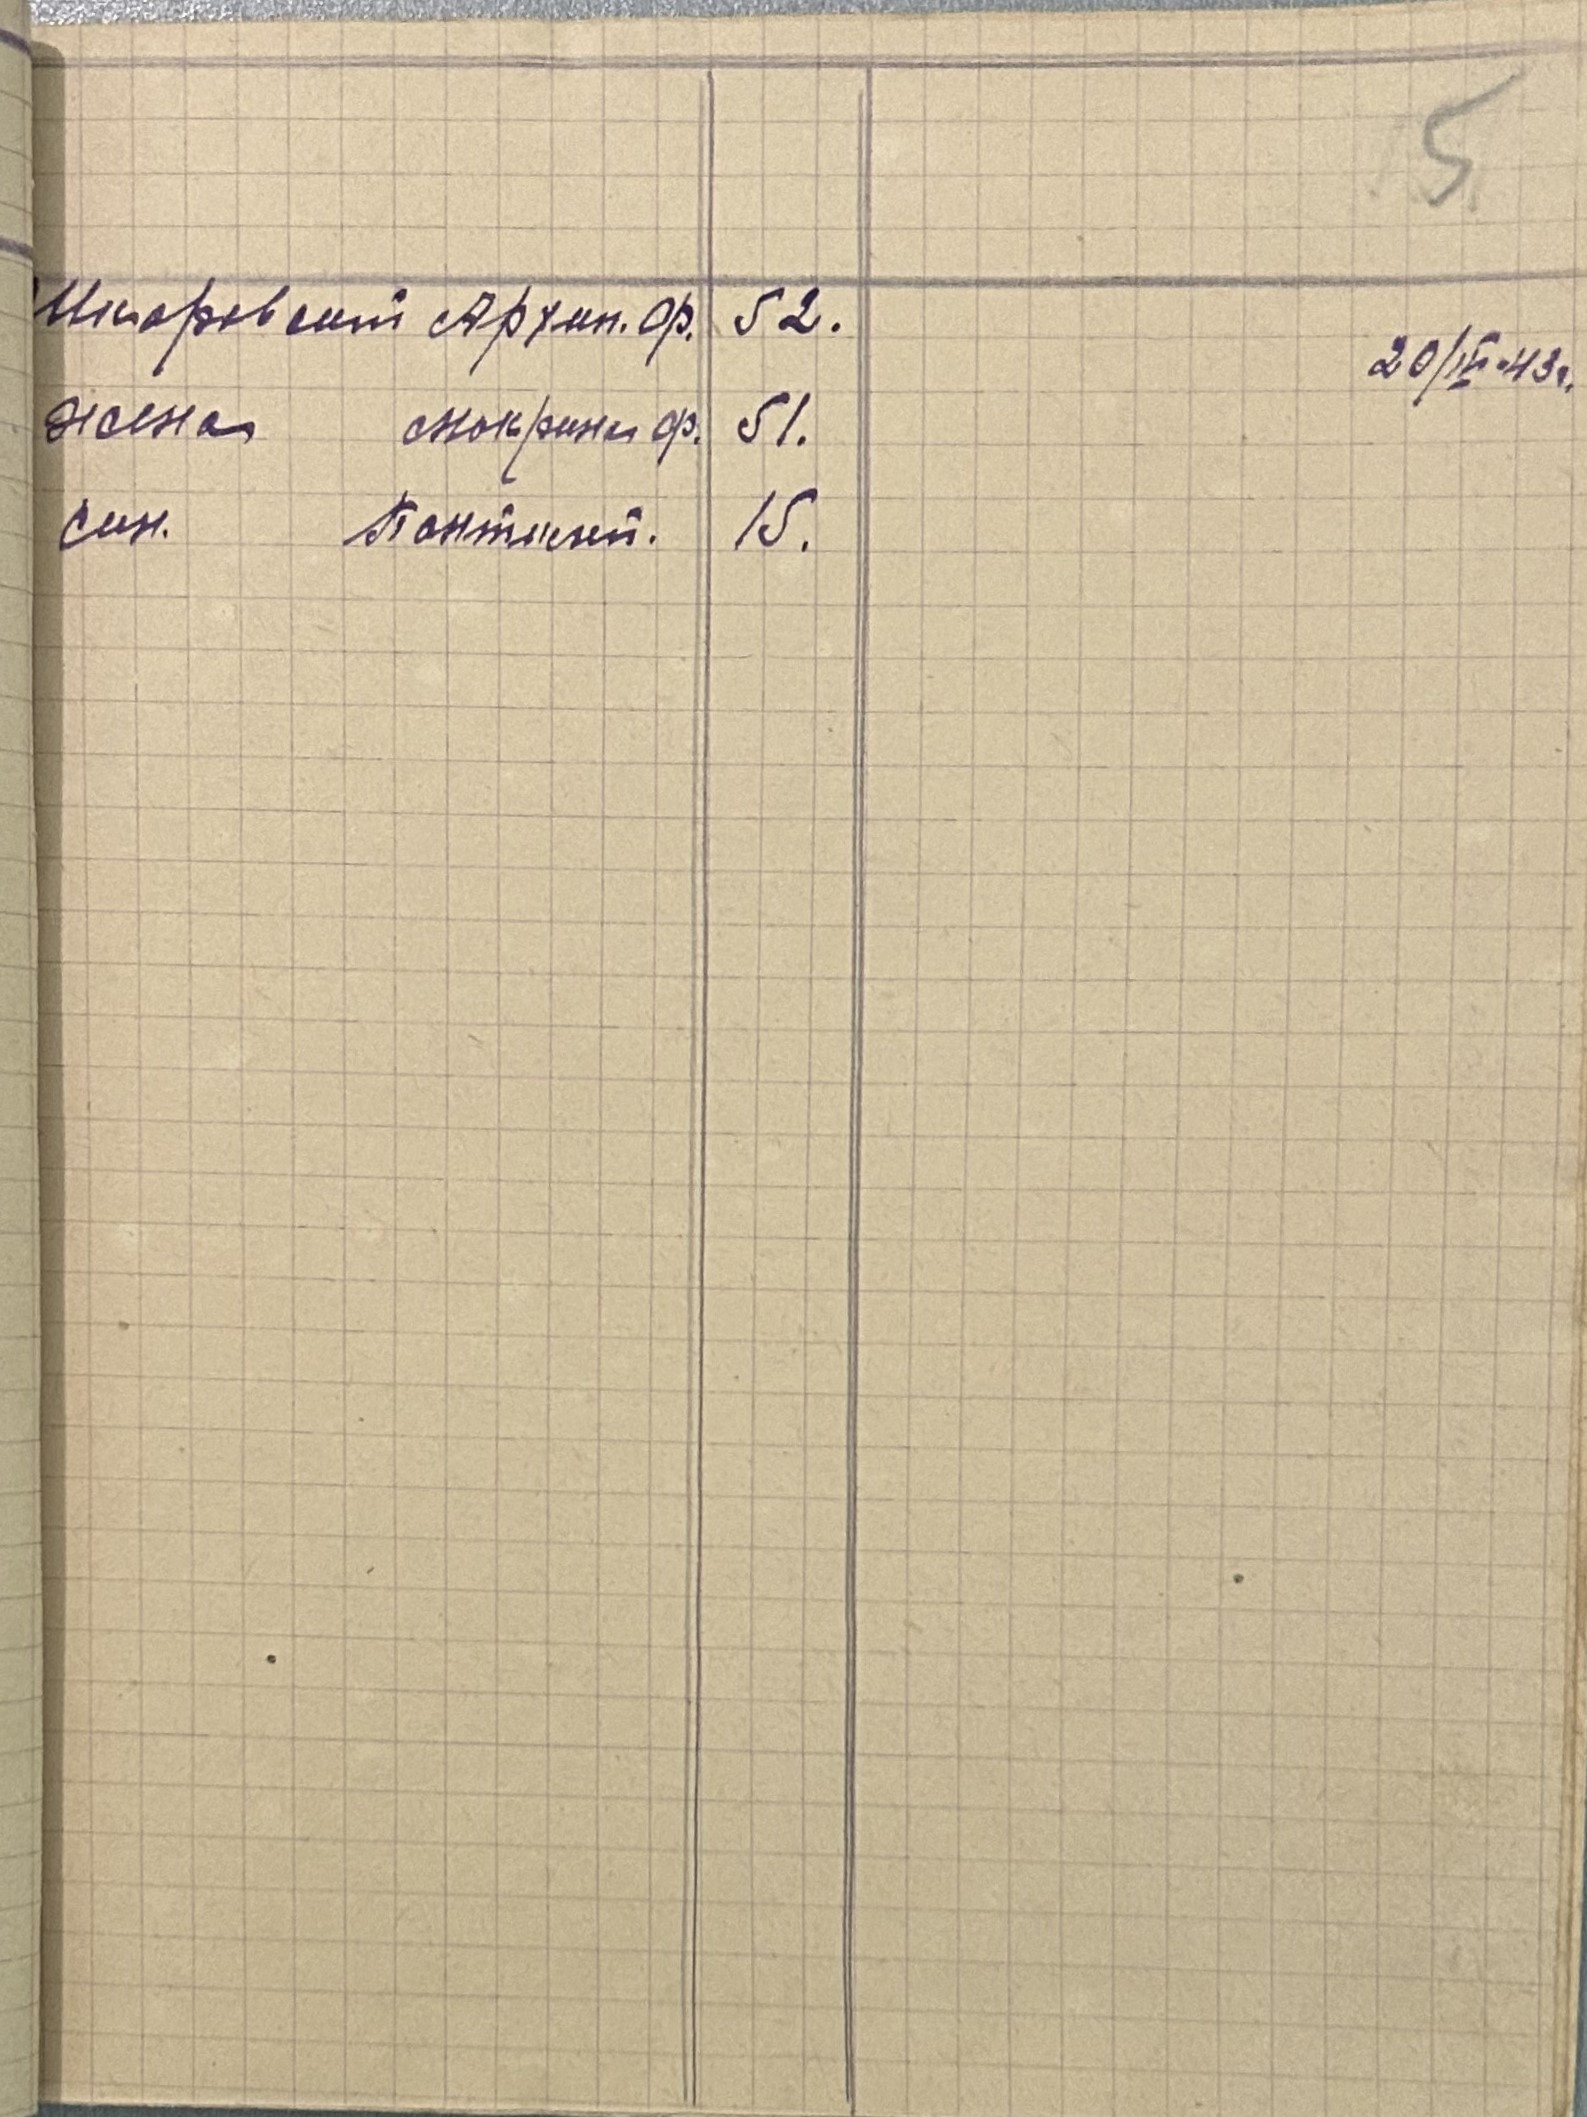 5
Шкоровский Архип. Ф. 52.
20/IV-43г.
жена Мокрина Ф. 51.
син. Пантилей. 15.